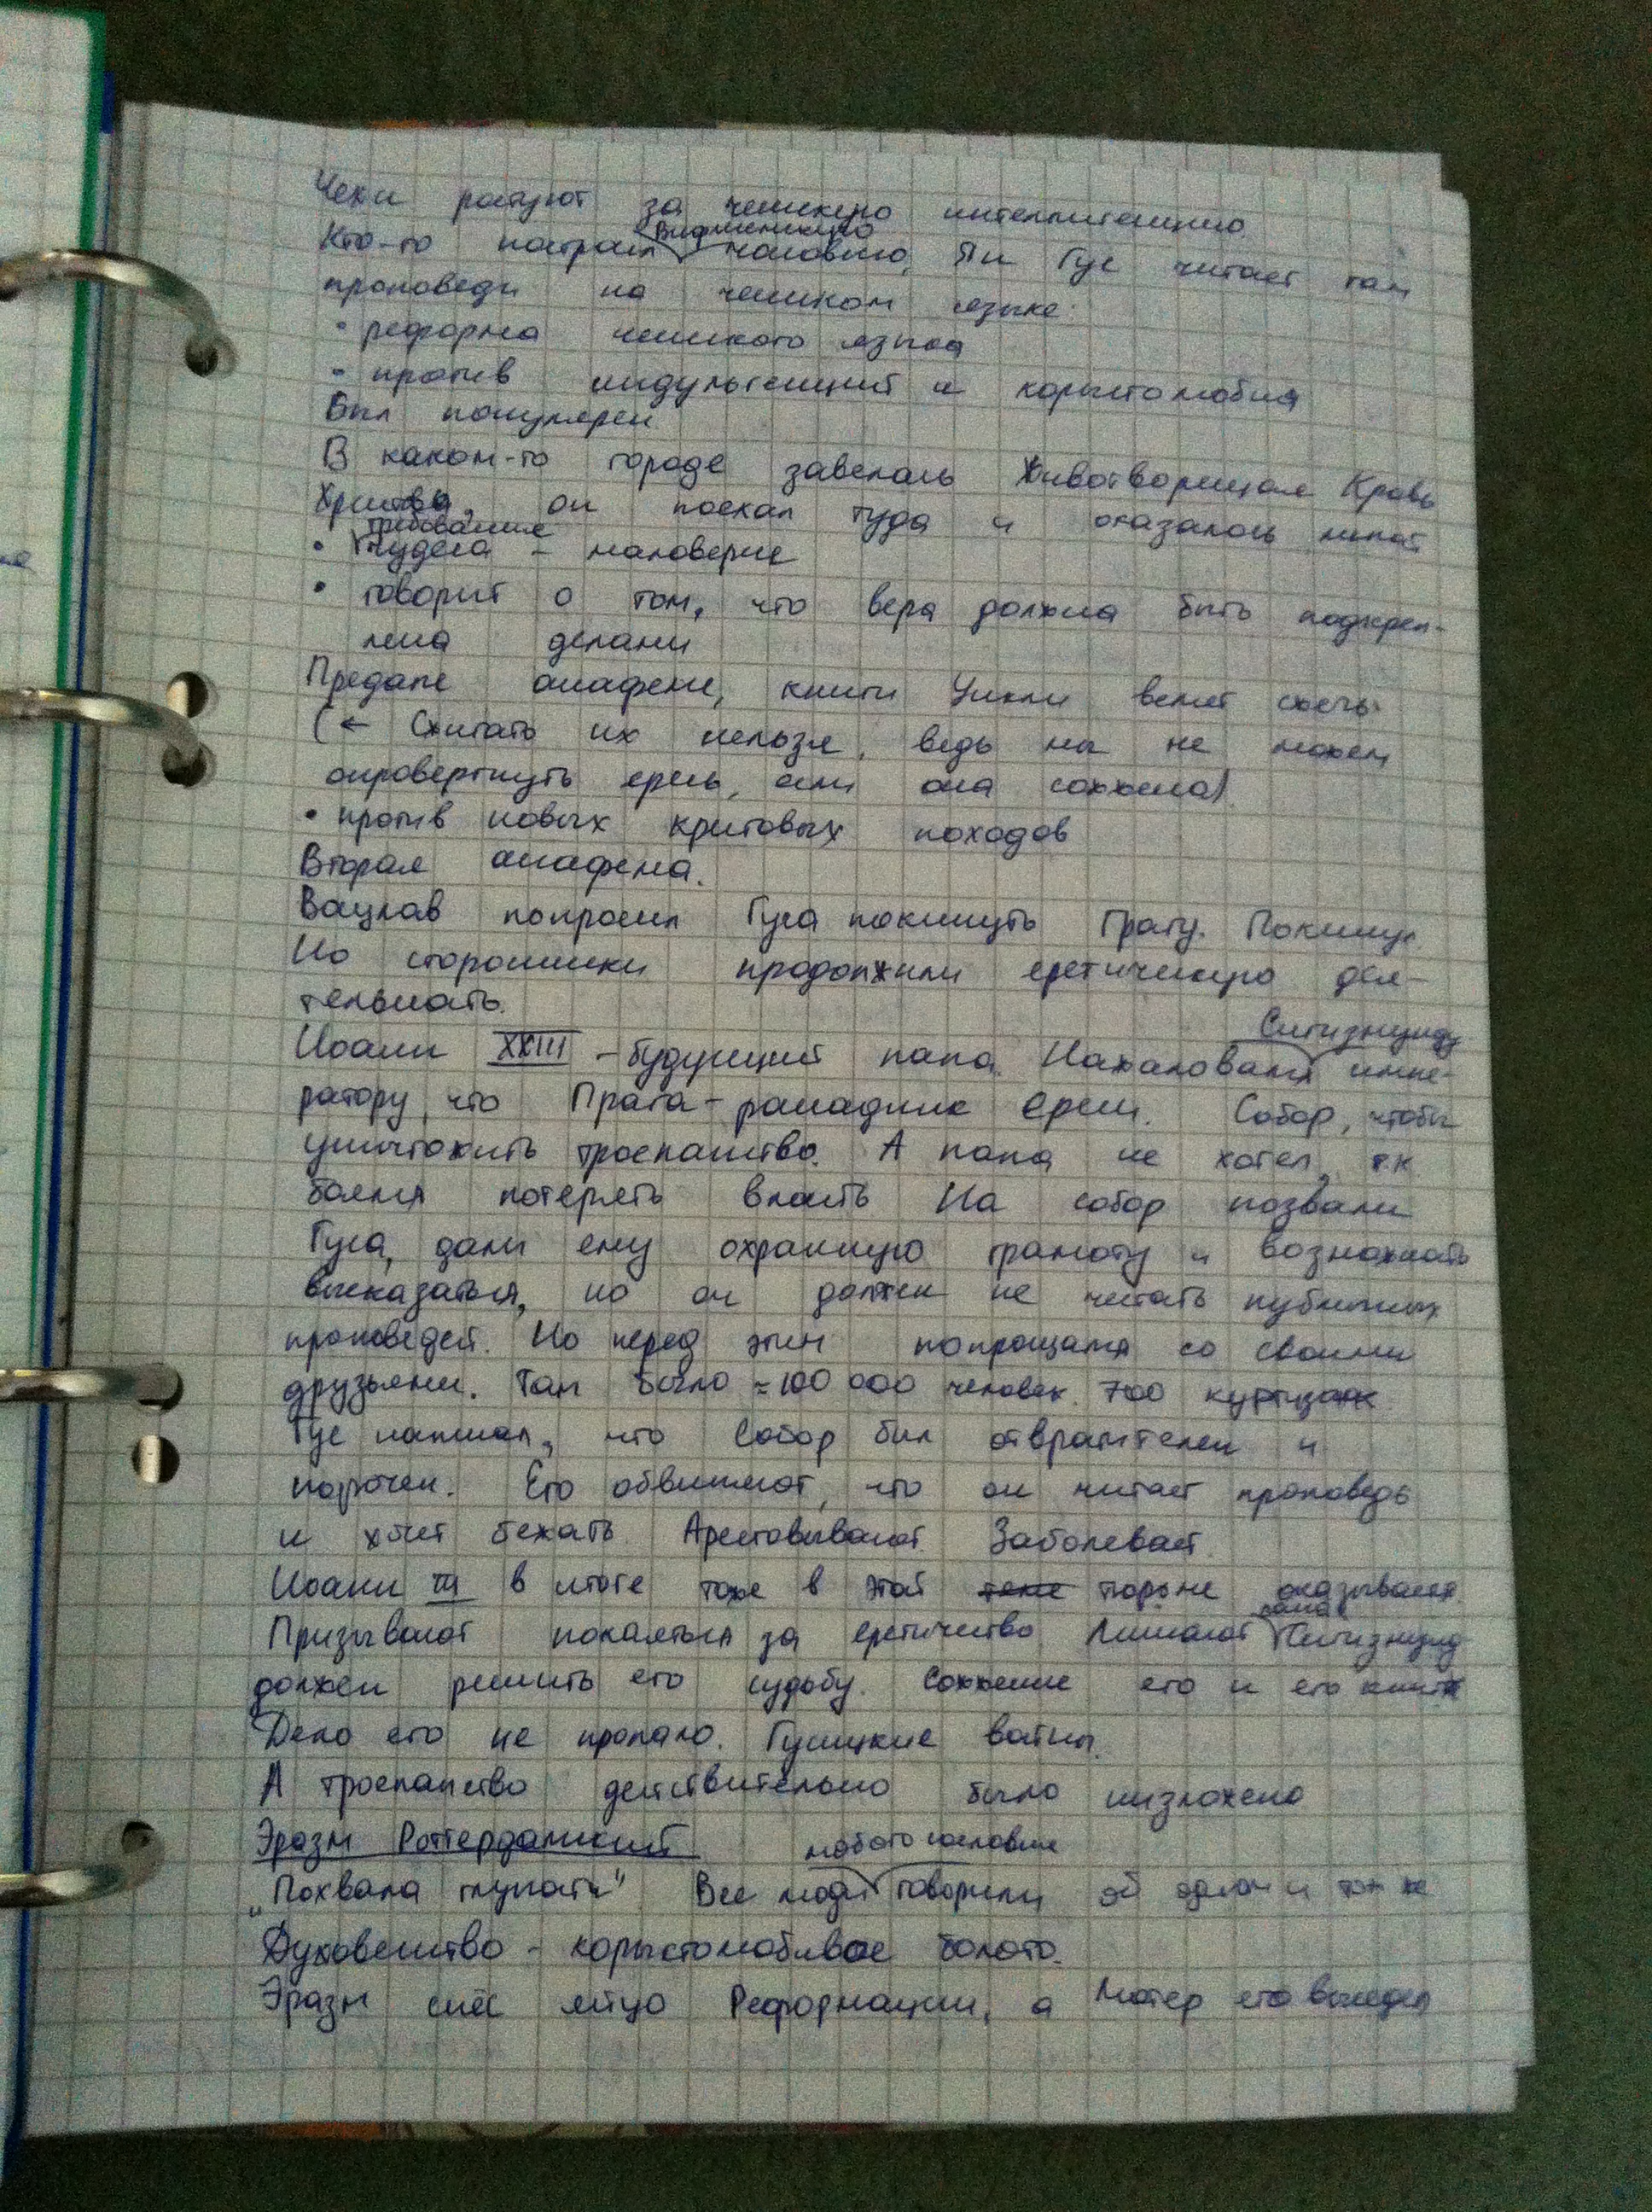 Чехи ратуют за чешскую интеллигенцию
Кто-то построил Вифлеемскую часовню, Ян Гус читает там
проповеди на чешском языке:
• реформа чешского языка
• против индульгенций и корыстолюбия
Был популярен
В каком-то городе завелась Животворящая Кровь
Христова, он поехал туда и оказалось липой
• требование чудеса – маловерие
• говорит о том, что вера должна быть подкреп-
лена делами
Предали анафеме, книги Уикли велят сжечь
(← Сжигать их нельзя, ведь мы не можем
опровергнуть ересь, если она сожжена)
• против новых крестовых походов
Вторая анафема.
Вацлав попросил Гуса покинуть Прагу. Покинул
Но сторонники продолжили еретическую дея-
тельность.
Иоанн XXIII – будущий папа. Нажаловался Сигизмунду импе-
ратору, что Прага – рассадник ереси. Собор, чтобы
уничтожить троепапство. А папа не хотел, т.к
боялся потерять власть На собор позвали
Гуса, дали ему охранную грамоту и возможность
высказаться, но он должен не читать публичных
проповедей. Но перед этим попрощался со своими
друзьями. Там было ≈100 000 человек. 700 куртизанок
Гус написал, что Собор был отвратителен и
порочен. Его обвиняют, что он читает проповедь
и хочет бежать. Арестовывают. Заболевает.
Иоанн III в итоге тоже в этой тюрьме оказывается
Призывают покаяться за еретичество. Лишают сана Сигизмунд
должен решить его судьбу. Сожжение его и его книг
Дело его не пропало. Гуситские войны.
А троепапство действительно было низложено
Эразм Роттердамский
„Похвала глупости" Все люди любого сословия говорили об одном и том же
Духовенство – корыстолюбивое болото.
Эразм снёс яйцо Реформации, а Лютер его высидел